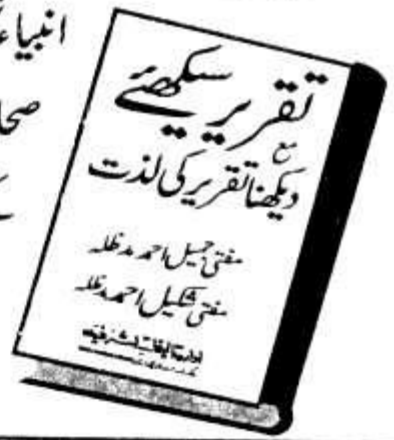 تقریر سیکھئے
مع
دیکھنا تقریر کی لذت
مفتی جمیل احمد مدظلہ
مفتی شکیل احمد مدظلہ
ادارہ تالیفات اشرفیہ
انبیاء